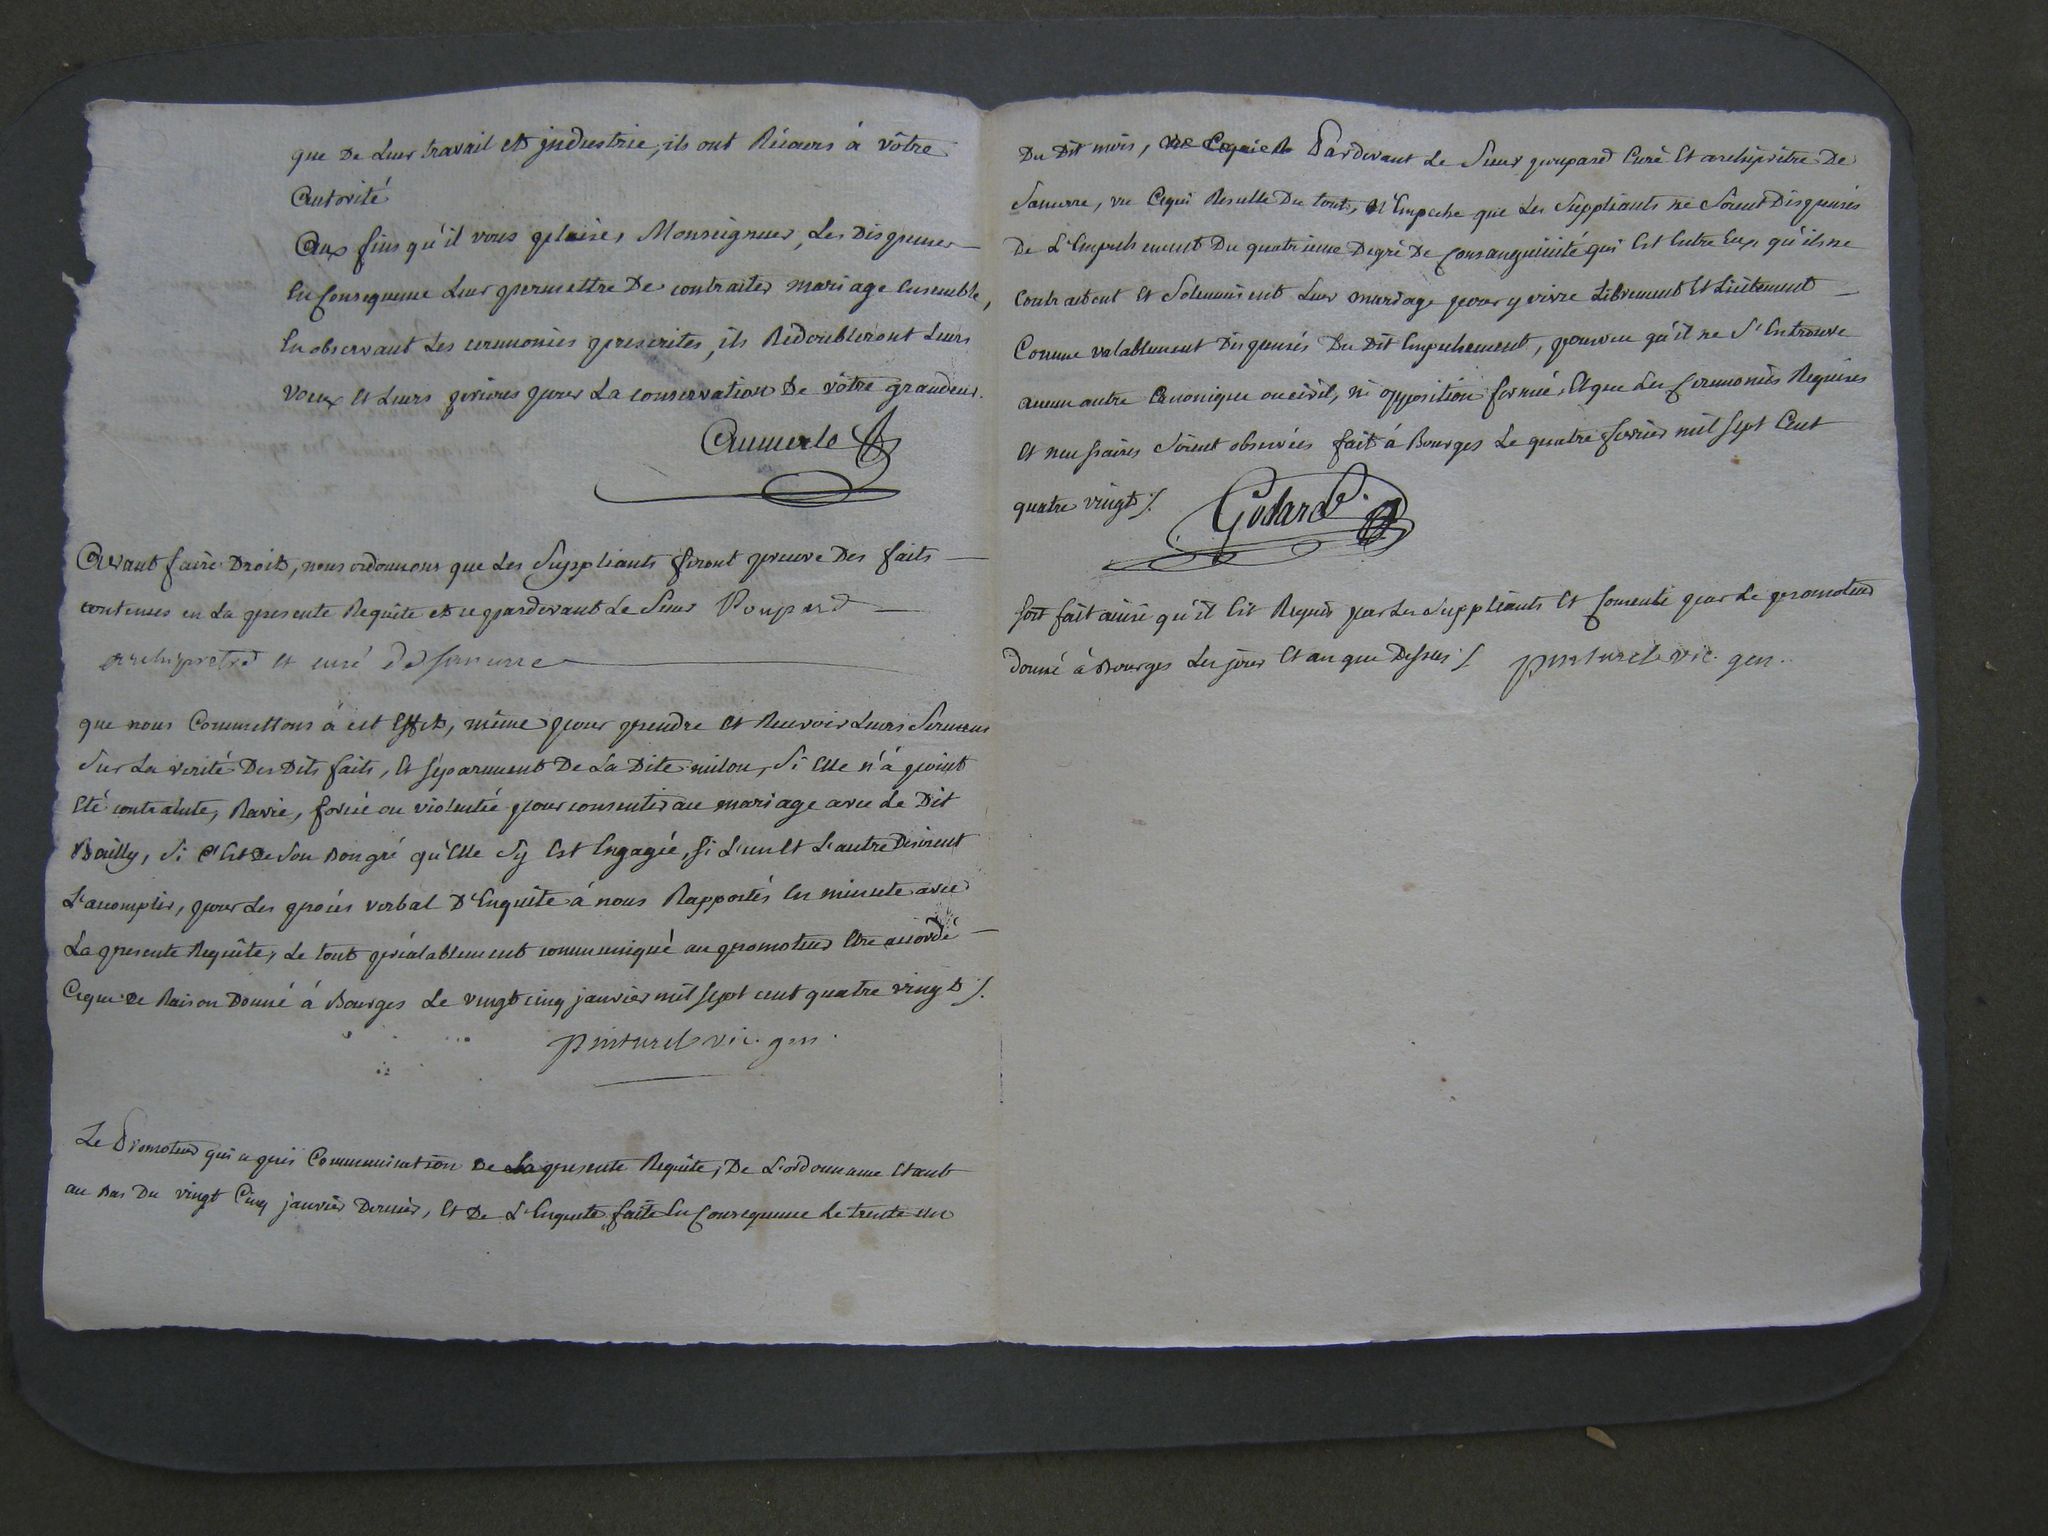 que De Leur travail et industrie, ils ont Récours á vôtre
autorité
aux fins qu'il vous plaise, Monseigneur, Les Dispenser
En Consequence Leur permettre De contracter mariage Ensemble,
En observant Les ceremonies prescrites, ils Redoubleront Leurs
voeux et Leurs prieres pour La conservation De vôtre grandeur.
Aumerle
avant faire Droit, nous ordonnons que Les Suppliants feront preuve Des faits
contenues en La presente Requête et ce pardevant Le Sieur Poupard
archiprêtre et curé de sancerre
que nous Commettons à cet Effet, même pour prendre et Recevoir Leurs Sermens
Sur La verité Des Dits faits, et séparement De La Dite milon, Si Elle n'á point
Eté contrainte, Ravie, forcée ou violentée pour consentir au mariage avec Le Dit
Bailly, Si C'est De Son Bongré qu'Elle Sy Est Engagée, Si L'un Et L'autre Desirent
L'accomplir, pour Les procés verbal D'Enquête á nous Rapportés En minute avec
La presente Requête, Le tout préalablement communiqué au promoteur Etre accordé
Ceque De Raison Donné á Bourges Le vingt cinq janvier mil Sept cent quatre vingt ./.
pinturel vic. gen.
Le Promoteur qui a pris Communication De La presente Requête, De L'ordonnance Etant
au Bas Du vingt Cinq janvier Dernier, Et De L'Enquete faite En Consequence Le trente un
Du Dit mois, Pardevant Le Sieur poupard Curé Et archiprêtre De
Sancerre, vu Cequi Resulte Du tout, N'Empeche que Les Suppliants ne Soient Dispensés
De L'Empechement Du quatrieme Degré De Consanguinité qui Est Entre Eux qu'ils ne
Contractent Et Solemnisent Leur mariage pour y vivre Librement Et Licitement
Comme valablement Dispensés Du Dit Empechement, pourveu qu'il ne S'En trouve
aucun autre Canonique ou civil, ni opposition formée, Et que Les Ceremonies Requises
Et necessaires Soient observées fait á Bourges Le quatre fevrier mil Sept Cent
quatre vingt ./. Godard
soit fait ainsi qu'il Est Requis par Les Suppliants Et Consenti par Le promoteur
Donné á Bourges Les jour Et an que Dessus ./. pinturel vic. gen.